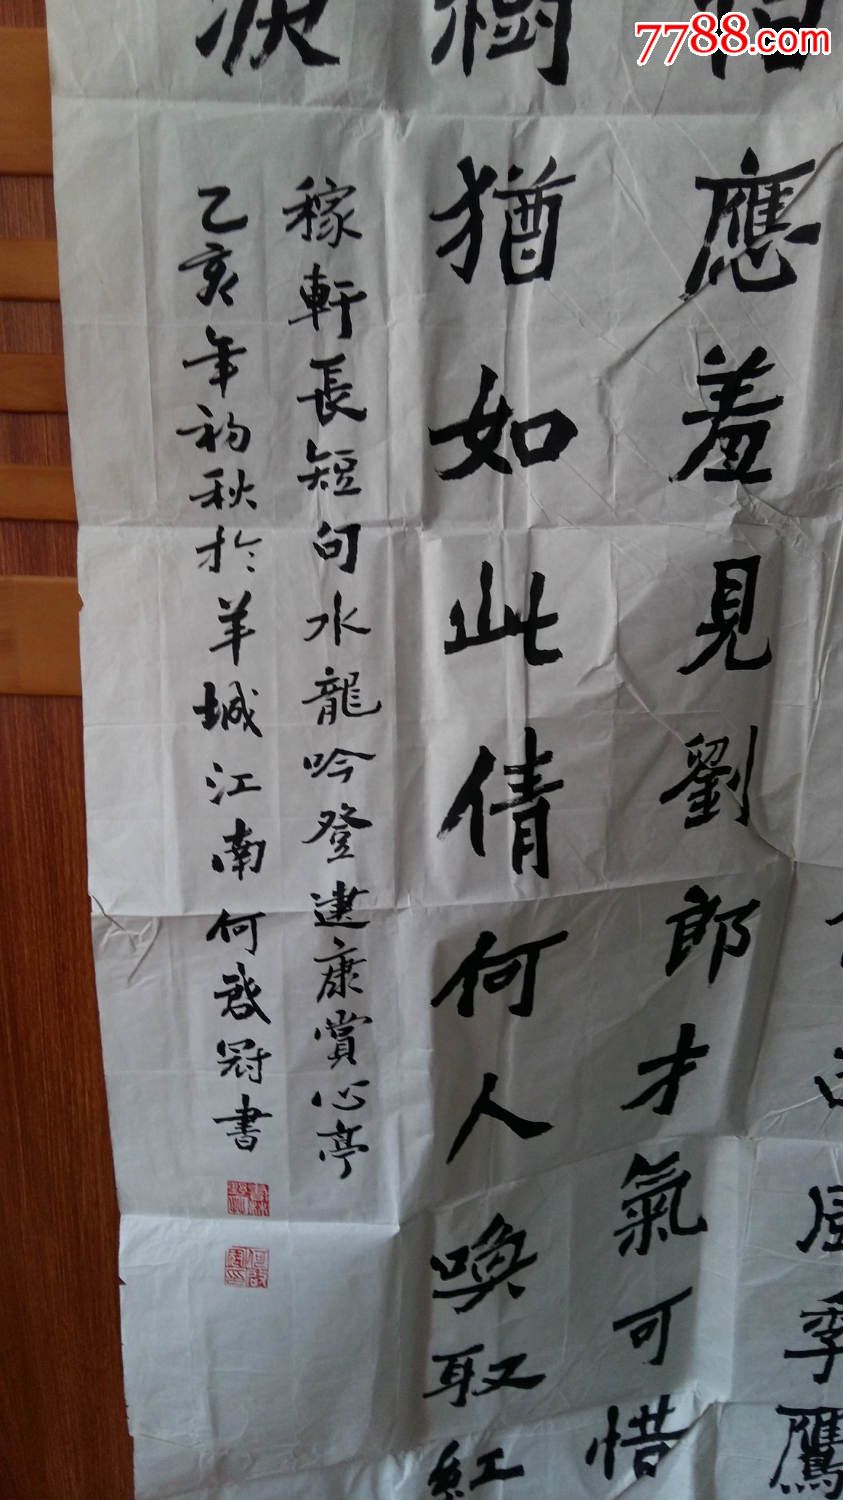 7788.com
風季鷹
怕應羞見劉郎才氣可惜
樹猶如此倩何人喚取紅
淚
稼軒長短句水龍吟登建康賞心亭
乙亥年初秋於羊城江南何啟冠書